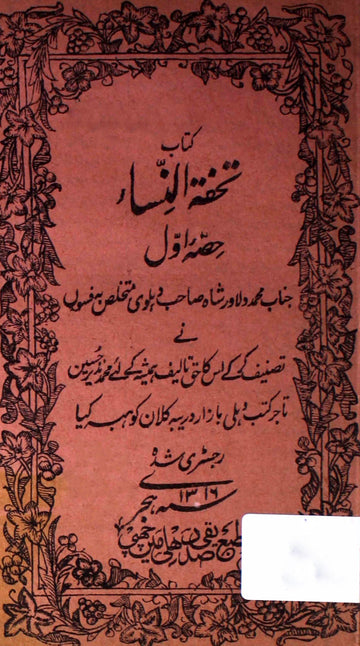 کتاب
تحفۃ النساء
حصۂ اوّل
جناب محمد دلاور شاہ صاحب دہلوی متخلص بہ فسوں
نے
تصنیف کر کے اس کا حق تالیف ہمیشہ کے لئے محمد نذیر حسین
تاجر کتب دہلی بازار دریبہ کلان کو ہبہ کیا
رجسٹری شدہ
سنہ ۱۳۱۶ ہجری
صدیقی دہلی میں چھپی